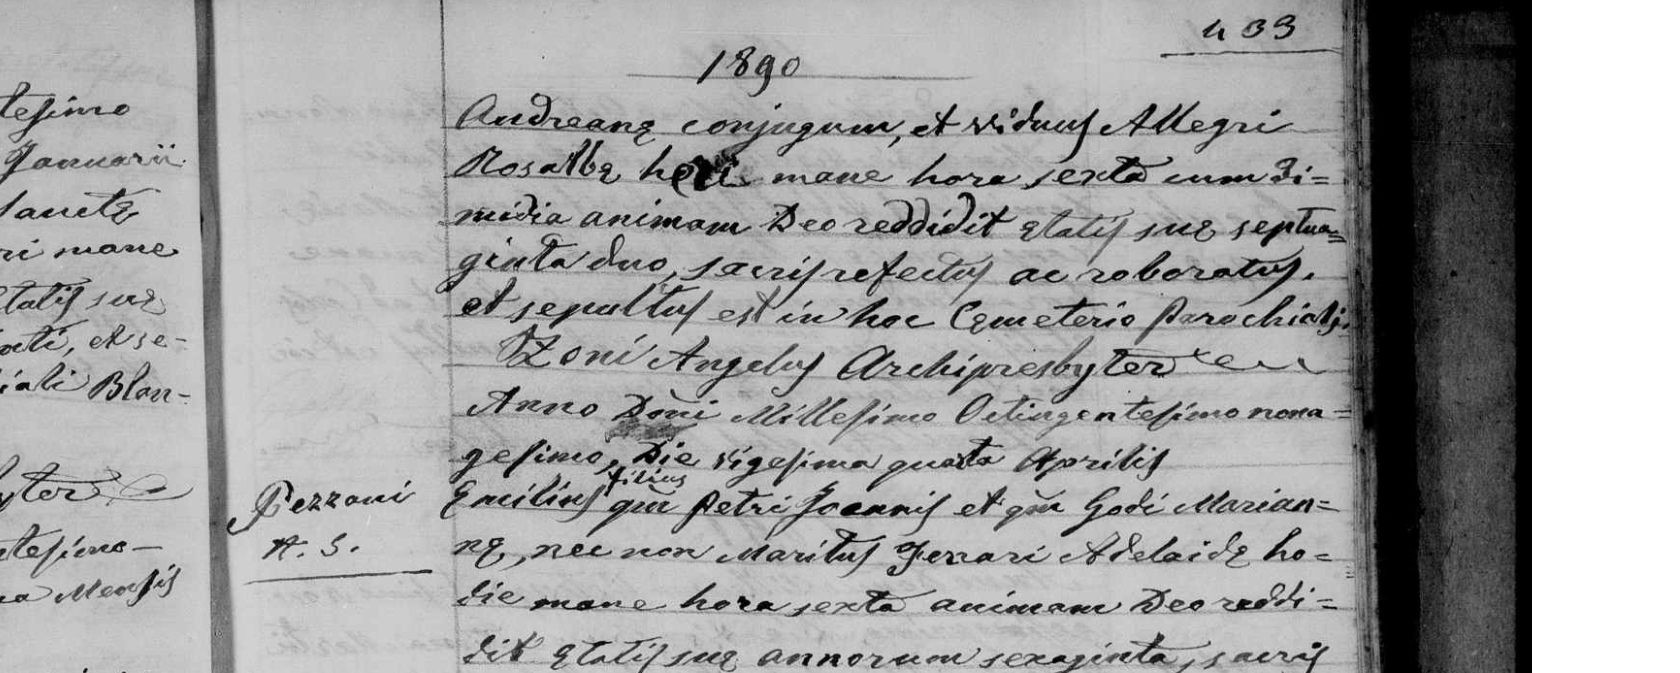 tesimo
Januarii
Sanctę
ri mane
tatis suę
nti, et se-
iali Blan-
yter
tesimo
na Mensis
433
1890
Andreanę conjugum, et viduus Allegri
Rosalbę heri mane hora sexta cum di=
midia animam Deo reddidit ętatis suę septua=
ginta duo, sacris refectus ac roboratus.
et sepultus est in hoc Cęmeterio Parochiali.
Zoni Angelus Archipresbyter
Anno Dom̃i Millesimo Octingentesimo nona=
gesimo, Die vigesima quarta Aprilis
Pezzoni
N. 5.
Emilius filius qm̃ Petri Joannis et qm̃ Godi Marian=
nę, nec non Maritus Ferrari Adelaidę ho=
die mane hora sexta animam Deo reddi=
dit ętatis suę annorum sexaginta, sacris